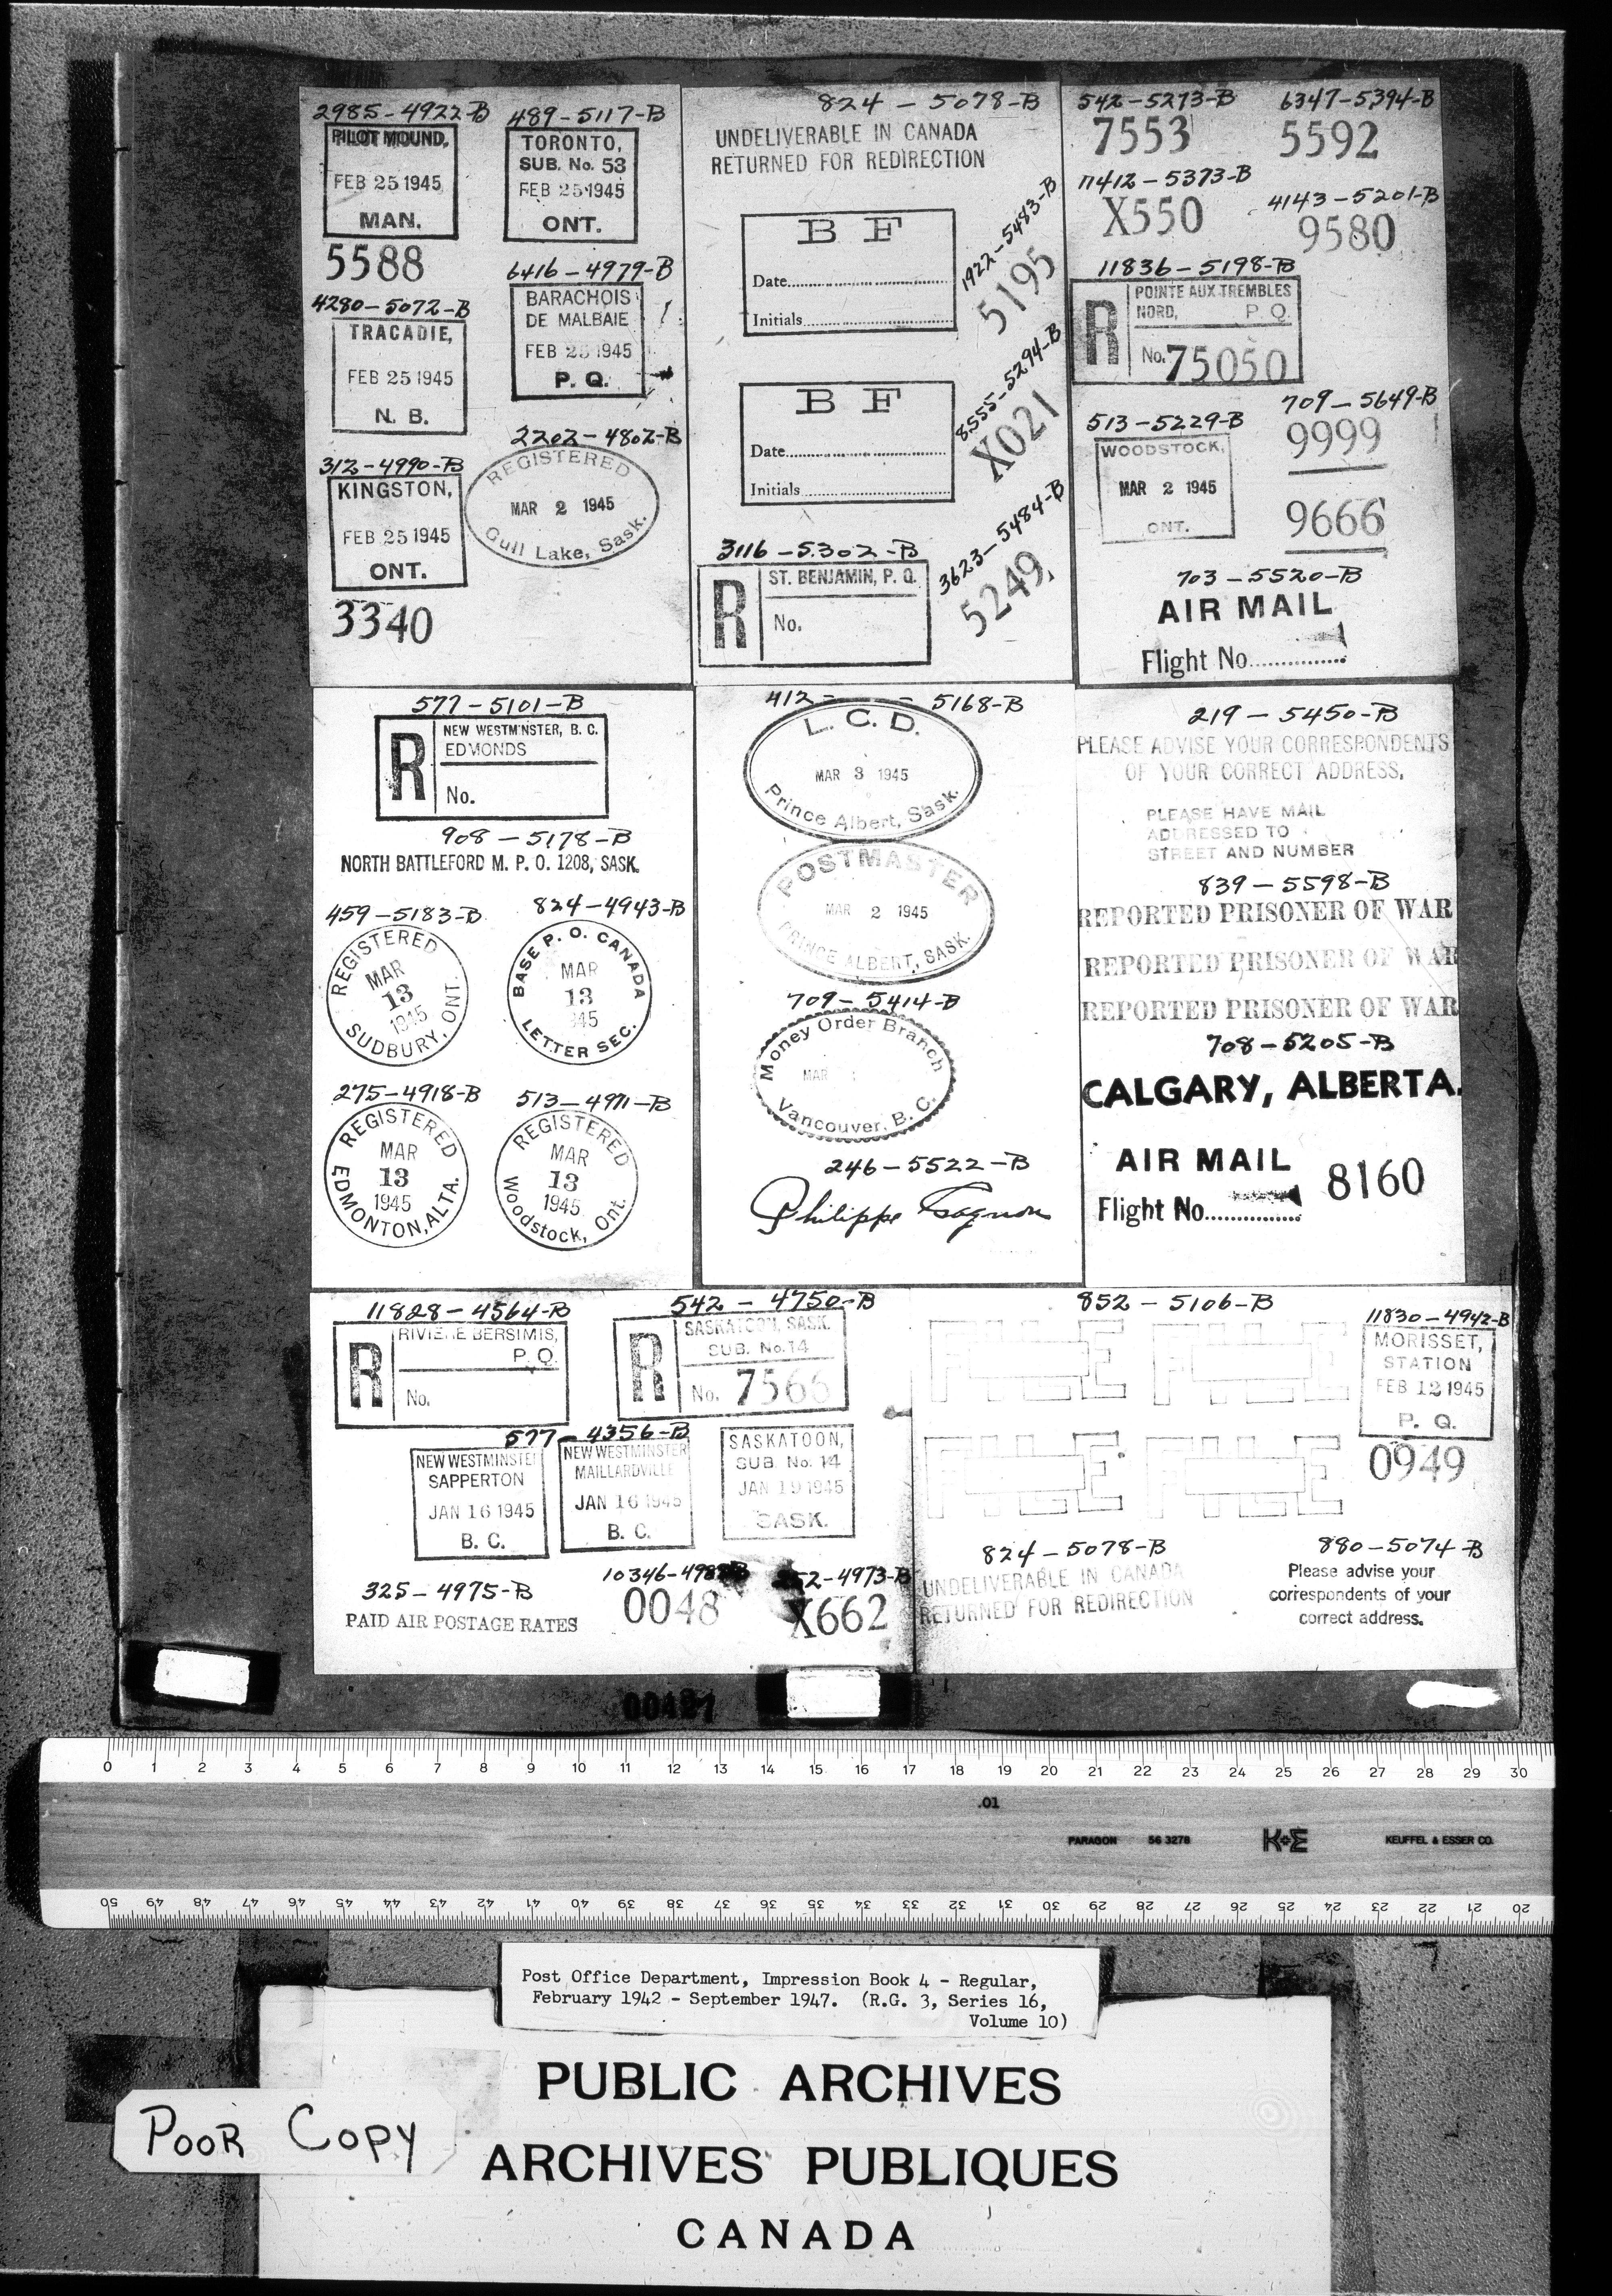 2985-4922-B
PILOT MOUND,
FEB 25 1945
MAN.
5588
4280-5072-B
TRACADIE,
FEB 25 1945
N. B.
312-4990-B
KINGSTON,
FEB 25 1945
ONT.
3340
489-5117-B
TORONTO,
SUB. No. 53
FEB 25 1945
ONT.
6416-4979-B
BARACHOIS
DE MALBAIE
FEB 25 1945
P. Q.
2202-4802-B
REGISTERED
MAR 2 1945
Gull Lake, Sask.
824-5078-B
UNDELIVERABLE IN CANADA
RETURNED FOR REDIRECTION
B F
Date
Initials
1922-5483-B
5195
B F
Date
Initials
8555-5294-B
X021
3116-5302-B
R
ST. BENJAMIN, P. Q.
No.
3623-5484-B
5249
542-5273-B
7553
6347-5394-B
5592
11412-5373-B
X550
4143-5201-B
9580
11836-5198-B
R
POINTE AUX TREMBLES
NORD, P. Q.
No. 75050
513-5229-B
WOODSTOCK,
MAR 2 1945
ONT.
709-5649-B
9999
9666
703-5520-B
AIR MAIL
Flight No.
577-5101-B
R
NEW WESTMINSTER, B. C.
EDMONDS
No.
908-5178-B
NORTH BATTLEFORD M. P. O. 1208, SASK.
459-5183-B
REGISTERED
MAR
13
1945
SUDBURY, ONT.
824-4943-B
BASE P. O. CANADA
MAR
13
945
LETTER SEC.
275-4918-B
REGISTERED
MAR
13
1945
EDMONTON, ALTA.
513-4971-B
REGISTERED
MAR
13
1945
Woodstock, Ont.
412- - 5168-B
L. C. D.
MAR 3 1945
Prince Albert, Sask.
POSTMASTER
MAR 2 1945
PRINCE ALBERT, SASK.
709-5414-B
Money Order Branch
MAR
Vancouver, B. C.
246-5522-B
Philippe Gagnon
219-5450-B
PLEASE ADVISE YOUR CORRESPONDENTS
OF YOUR CORRECT ADDRESS.
PLEASE HAVE MAIL
ADDRESSED TO
STREET AND NUMBER
839-5598-B
REPORTED PRISONER OF WAR
REPORTED PRISONER OF WAR
REPORTED PRISONER OF WAR
708-5205-B
CALGARY, ALBERTA.
AIR MAIL
Flight No.
8160
11828-4564-B
R
RIVIERE BERSIMIS,
P. Q.
No.
542-4750-B
R
SASKATOON, SASK.
SUB. No. 14
No. 7566
577-4356-B
NEW WESTMINSTER
SAPPERTON
JAN 16 1945
B. C.
NEW WESTMINSTER
MAILLARDVILLE
JAN 16 1945
B. C.
SASKATOON,
SUB. No. 14
JAN 19 1945
SASK.
325-4975-B
PAID AIR POSTAGE RATES
0048
52-4973-B
X662
852-5106-B
FILE FILE
FILE FILE
11830-4942-B
MORISSET,
STATION
FEB 12 1945
P. Q.
0949
824-5078-B
UNDELIVERABLE IN CANADA
RETURNED FOR REDIRECTION
880-5074-B
Please advise your
correspondents of your
correct address.
0 1 2 3 4 5 6 7 8 9 10 11 12 13 14 15 16 17 18 19 20 21 22 23 24 25 26 27 28 29 30
.01
PARAGON 56 3278 K+E KEUFFEL & ESSER CO.
50 49 48 47 46 45 44 43 42 41 40 39 38 37 36 35 34 33 32 31 30 29 28 27 26 25 24 23 22 21 20
Post Office Department, Impression Book 4 - Regular,
February 1942 - September 1947. (R.G. 3, Series 16,
Volume 10)
PUBLIC ARCHIVES
ARCHIVES PUBLIQUES
CANADA
POOR COPY